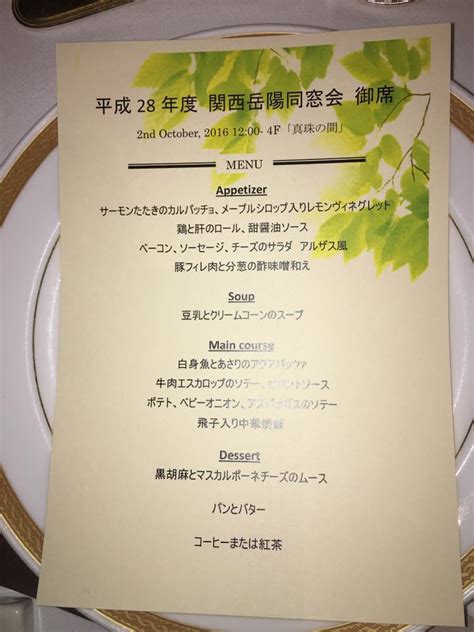 平成 28 年度 関西岳陽同窓会 御席
2nd October, 2016 12:00- 4F「真珠の間」
MENU
Appetizer
サーモンたたきのカルパッチョ、メープルシロップ入りレモンヴィネグレット
鶏と肝のロール、甜醤油ソース
ベーコン、ソーセージ、チーズのサラダ アルザス風
豚フィレ肉と分葱の酢味噌和え
Soup
豆乳とクリームコーンのスープ
Main course
白身魚とあさりのアクアパッツァ
牛肉エスカロップのソテー、ソース
ポテト、ベビーオニオン、アスパラガスのソテー
飛子入り中華焼飯
Dessert
黒胡麻とマスカルポーネチーズのムース
パンとバター
コーヒーまたは紅茶